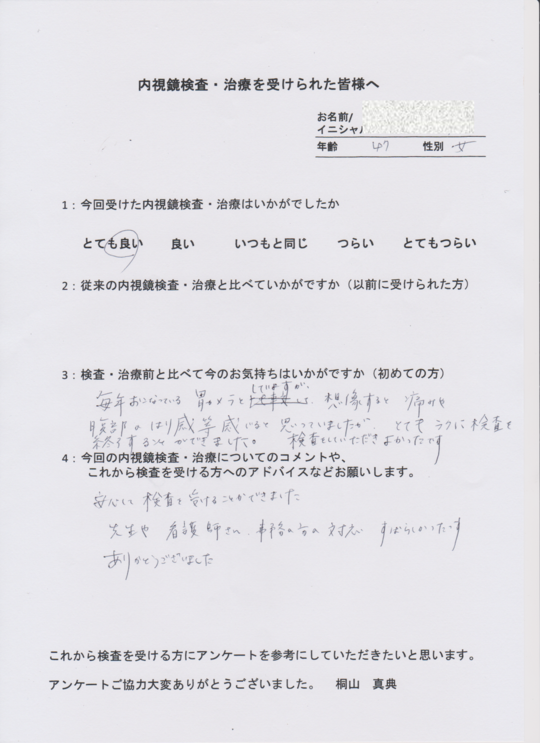 内視鏡検査・治療を受けられた皆様へ
お名前/
イニシャル
年齢 47 性別 女
1：今回受けた内視鏡検査・治療はいかがでしたか
とても良い 良い いつもと同じ つらい とてもつらい
2：従来の内視鏡検査・治療と比べていかがですか（以前に受けられた方）
3：検査・治療前と比べて今のお気持ちはいかがですか（初めての方）
していますが、
毎年おこなっている 胃カメラと 想像すると 痛みや
腹部のはり感等感じると思っていましたが、とてもラクに検査を
終了することができました。 検査をしていただきよかったです
4：今回の内視鏡検査・治療についてのコメントや、
これから検査を受ける方へのアドバイスなどお願いします。
安心して検査を受けることができました
先生や 看護師さん、事務の方の対応 すばらしかったです
ありがとうございました
これから検査を受ける方にアンケートを参考にしていただきたいと思います。
アンケートご協力大変ありがとうございました。 桐山 真典